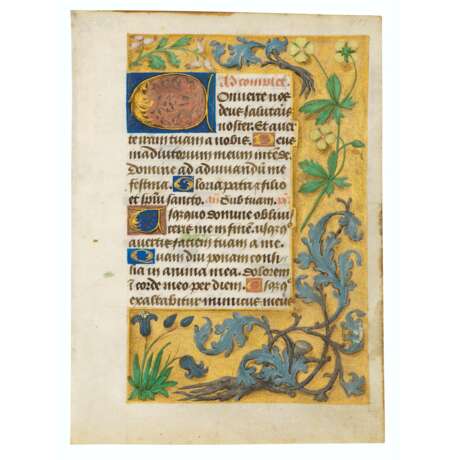 Ad complet.
Conuerte nos
deus salutaris
noster. Et auer
te iram tuam a nobis. Deus
in adiutorium meum intēde.
Domine ad adiuuandū me
festina. Gloria patri et filio
et spiritui sancto. an Sub tuam. ps
Usquequo domine obliui
sceris me in finē. usquequo
auertis faciem tuam a me.
Quam diu ponam consi
lia in anima mea. dolorem
ī corde meo per diem. Usquequo
exaltabitur inimicus meus